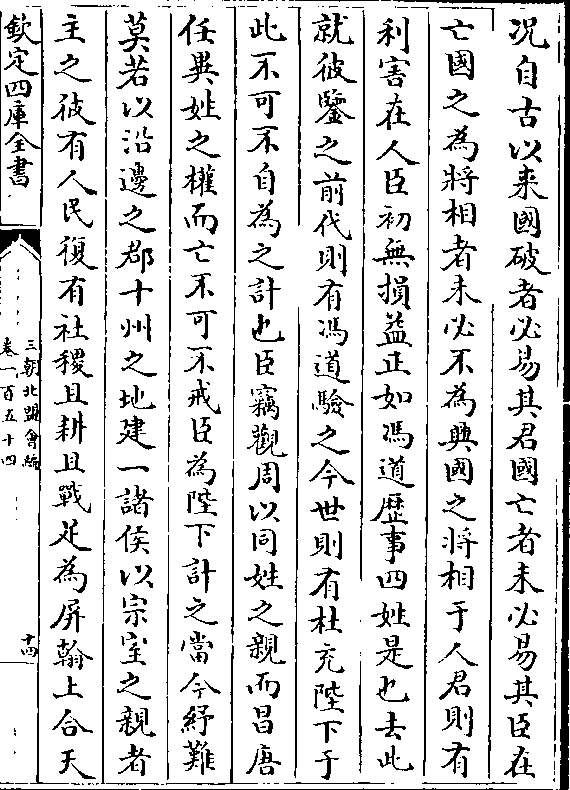 况自古以来國破者必易其君國亡者未必易其臣在
亡國之為將相者未必不為興國之將相于人君則有
利害在人臣初無損益正如馮道歴事四姓是也去此
就彼鑒之前代則有馮道驗之今世則有杜充陛下于
此不可不自為之計也臣竊觀周以同姓之親而昌唐
任異姓之權而亡不可不戒臣為陛下計之當今紓難
莫若以沿邊之郡十州之地建一諸侯以宗室之親者
主之彼有人民復有社稷且耕且戰足為屏翰上合天
欽定四庫全書
三朝北盟會編
卷一百五十四
十四